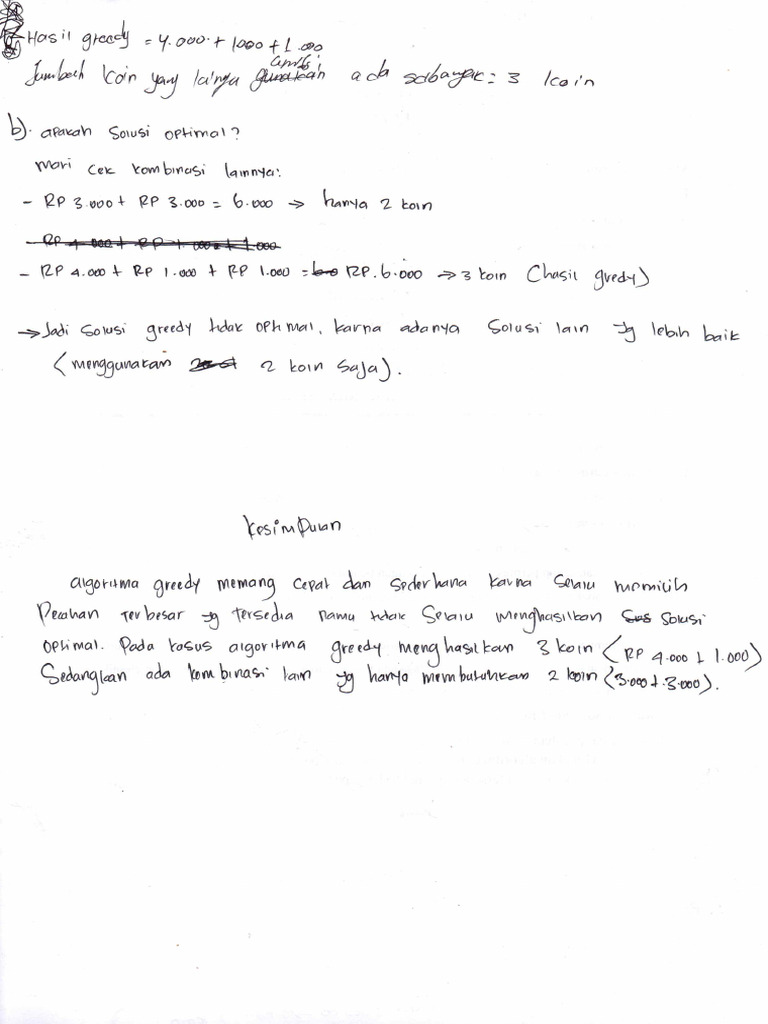 Hasil greedy = 4.000 + 1000 + 1.000
Jumbach koin yang lainya ada sebanyak = 3 koin
b). apakah solusi optimal?
Mari cek kombinasi lainnya:
- RP 3.000 + RP 3.000 = 6.000 → hanya 2 koin
- RP 4.000 + RP 1.000 + RP 1.000 = RP. 6.000 → 3 koin (hasil gredy)
→ Jadi solusi greedy tidak optimal, karna adanya solusi lain yg lebih baik
(menggunakan 2 koin saja).
Kesimpulan
algoritma greedy memang cepat dan sederhana karna selalu memilih
Pecahan terbesar yg tersedia namu tidak selalu menghasilkan solusi
optimal. Pada kasus algoritma greedy menghasilkan 3 koin (RP 4.000 + 1.000)
Sedangkan ada kombinasi lain yg hanya membutuhkan 2 koin (3.000 + 3.000).